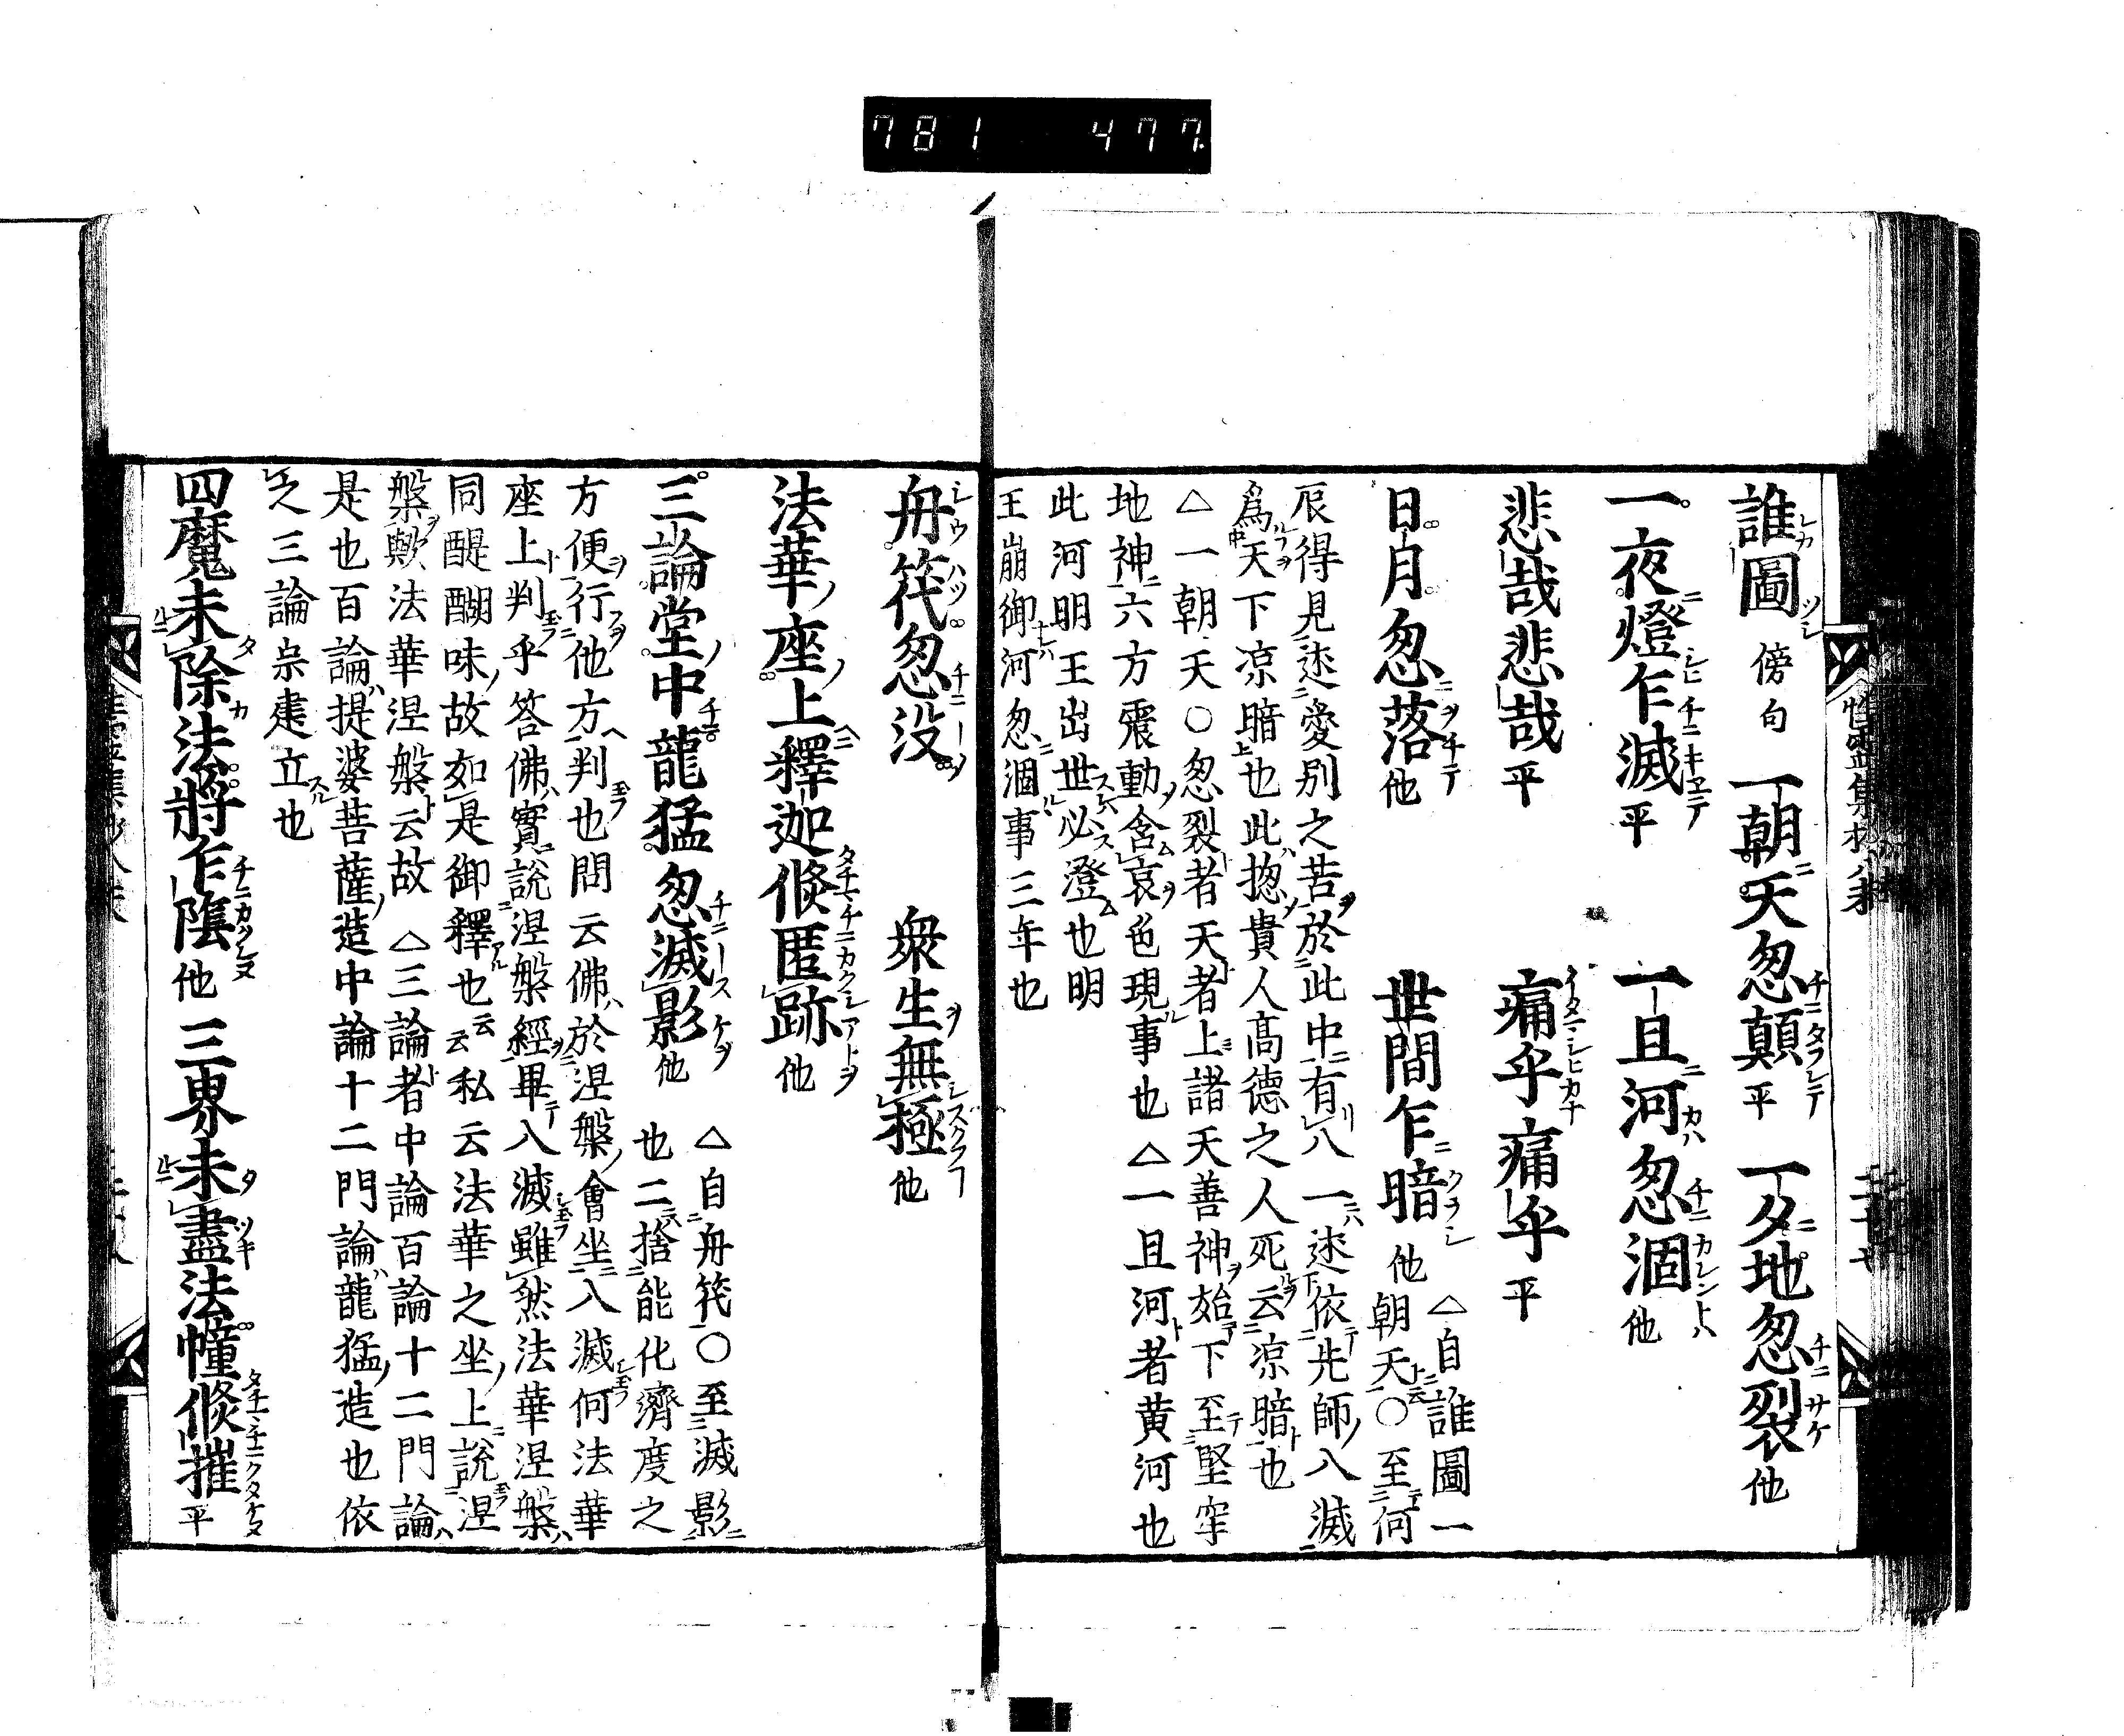 781 477
誰圖 傍句 一朝天忽顛平 一夕地忽裂他
一夜燈乍滅平 一旦河忽涸他
悲哉悲哉平 痛乎痛乎平
日月忽落他 世間乍暗他 △自誰圖一
朝天〇至何
辰得見迷愛別之苦於此中有八一迷依先師八滅
為天下凉暗也此揔貴人高德之人死云凉暗也
△一朝天〇忽裂者天者上諸天善神始下至堅牢
地神六方震動含哀色現事也△一旦河者黄河也
此河明王出世必澄也明
王崩御河忽涸事三年也
舟筏忽没 衆生無極他
法華座上釋迦倐匿跡他
三論堂中龍猛忽滅影他 △自舟筏〇至滅影
也二捨能化濟度之
方便行他方判也問云佛於涅槃會坐入滅何法華
座上判乎答佛實説涅槃經畢入滅雖然法華涅槃
同醍醐味故如是御釋也云云私云法華之坐上説涅
槃歟法華涅槃云故 △三論者中論百論十二門論
是也百論提婆菩薩造中論十二門論龍猛造也依
之三論宗建立也
四魔未除法將乍隂他 三界未盡法幢倐摧平